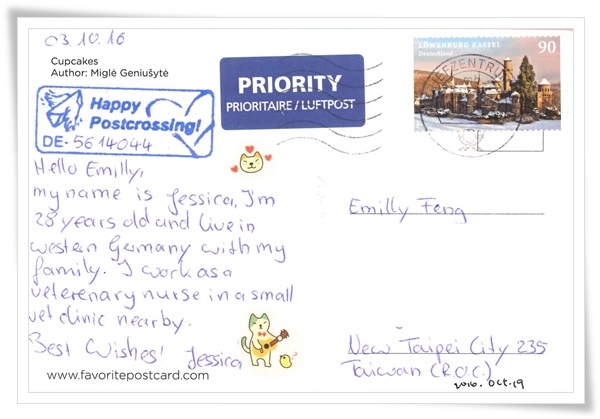 03.10.16
Cupcakes
Author: Miglė Geniušytė
Happy
Postcrossing!
DE-5614044
Hello Emilly,
my name is Jessica, I'm
28 years old and live in
western Germany with my
family. I work as a
veterenary nurse in a small
vet clinic nearby.
Best Wishes! Jessica
www.favoritepostcard.com
PRIORITY
PRIORITAIRE / LUFTPOST
LÖWENBURG KASSEL
Deutschland
90
Emilly Feng
New Taipei City 235
Taiwan (R.O.C.)
2016. Oct. 19